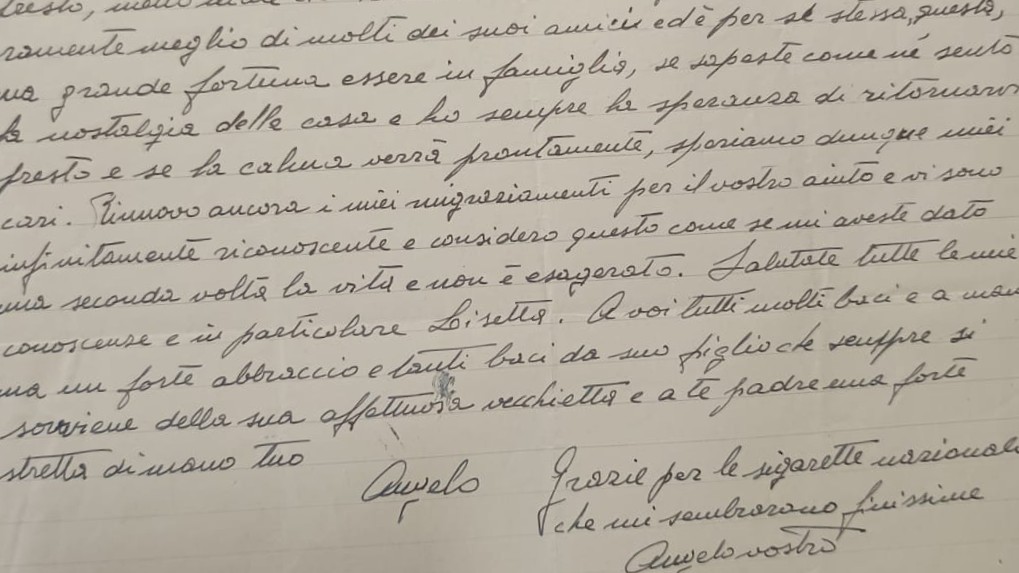 ramente meglio di molti dei suoi amici ed è per se stessa, questa,
una grande fortuna essere in famiglia, se sapeste come né sento
la nostalgia delle casa e ho sempre la speranza di ritornarvi
presto e se la calma verrà prontamente, speriamo dunque miei
cari. Rinnovo ancora i miei ringraziamenti per il vostro aiuto e vi sono
infinitamente riconoscente e considero questo come se mi aveste dato
una seconda volta la vita e non è esagerato. Salutate tutte le mie
conoscenze e in particolare Lisetta. A voi tutti molti baci e a mam
ma un forte abbraccio e tanti baci da suo figlio che sempre si
sovviene della sua affettuosa vecchietta e a te padre una forte
stretta di mano tuo
Angelo
Grazie per le sigarette nazionali
che mi sembrarono finissime
Angelo vostro